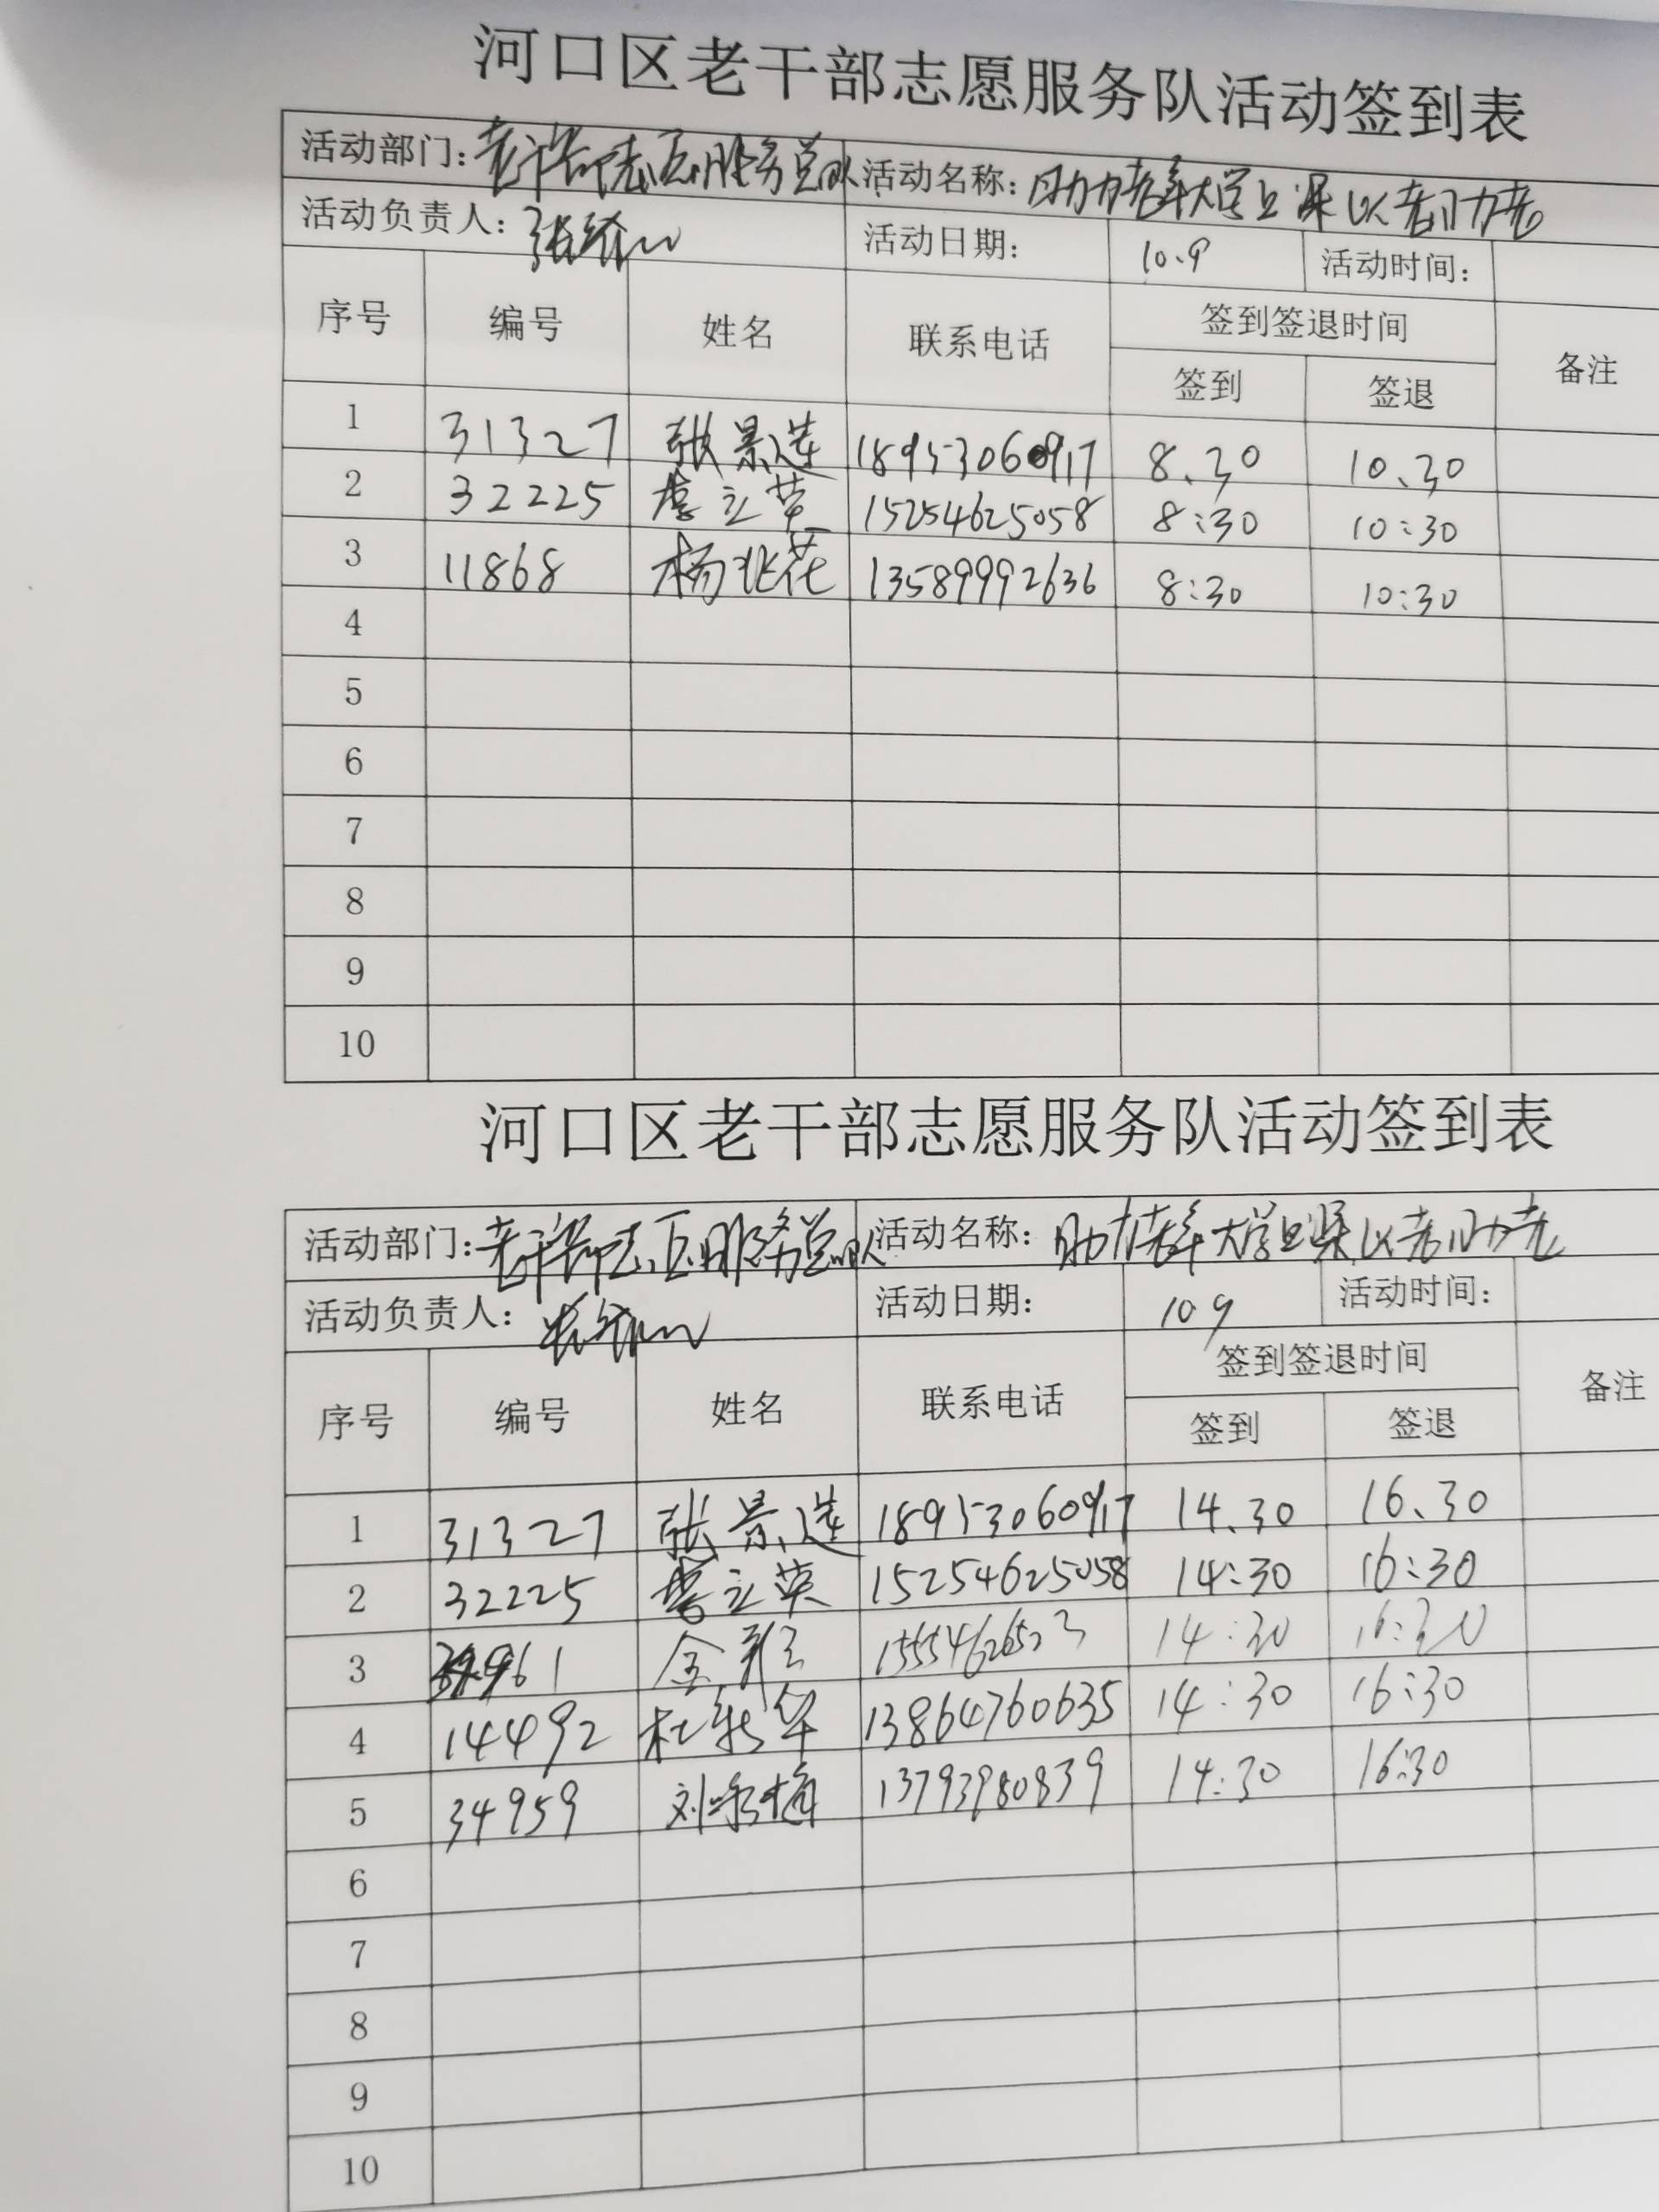 河口区老干部志愿服务队活动签到表
活动部门：老干部志愿服务总队 活动名称：助力老年大学上课以老助老
活动负责人： 活动日期： 10.9 活动时间：
序号 编号 姓名 联系电话 签到签退时间 备注
签到 签退
1 31327 张景莲 18953060917 8.30 10.30
2 32225 李立英 15254625058 8:30 10:30
3 11868 杨兆花 13589992636 8:30 10:30
4
5
6
7
8
9
10
河口区老干部志愿服务队活动签到表
活动部门：老干部志愿服务总队 活动名称：助力老年大学上课以老助老
活动负责人： 活动日期： 10 9 活动时间：
签到签退时间
序号 编号 姓名 联系电话 备注
签到 签退
1 31327 张景莲 18953060917 14.30 16.30
2 32225 李立英 15254625058 14:30 16:30
3 14:30 16:30
4 14492 杜新华 13864760635 14:30 16:30
5 34959 13793980839 14:30 16:30
6
7
8
9
10